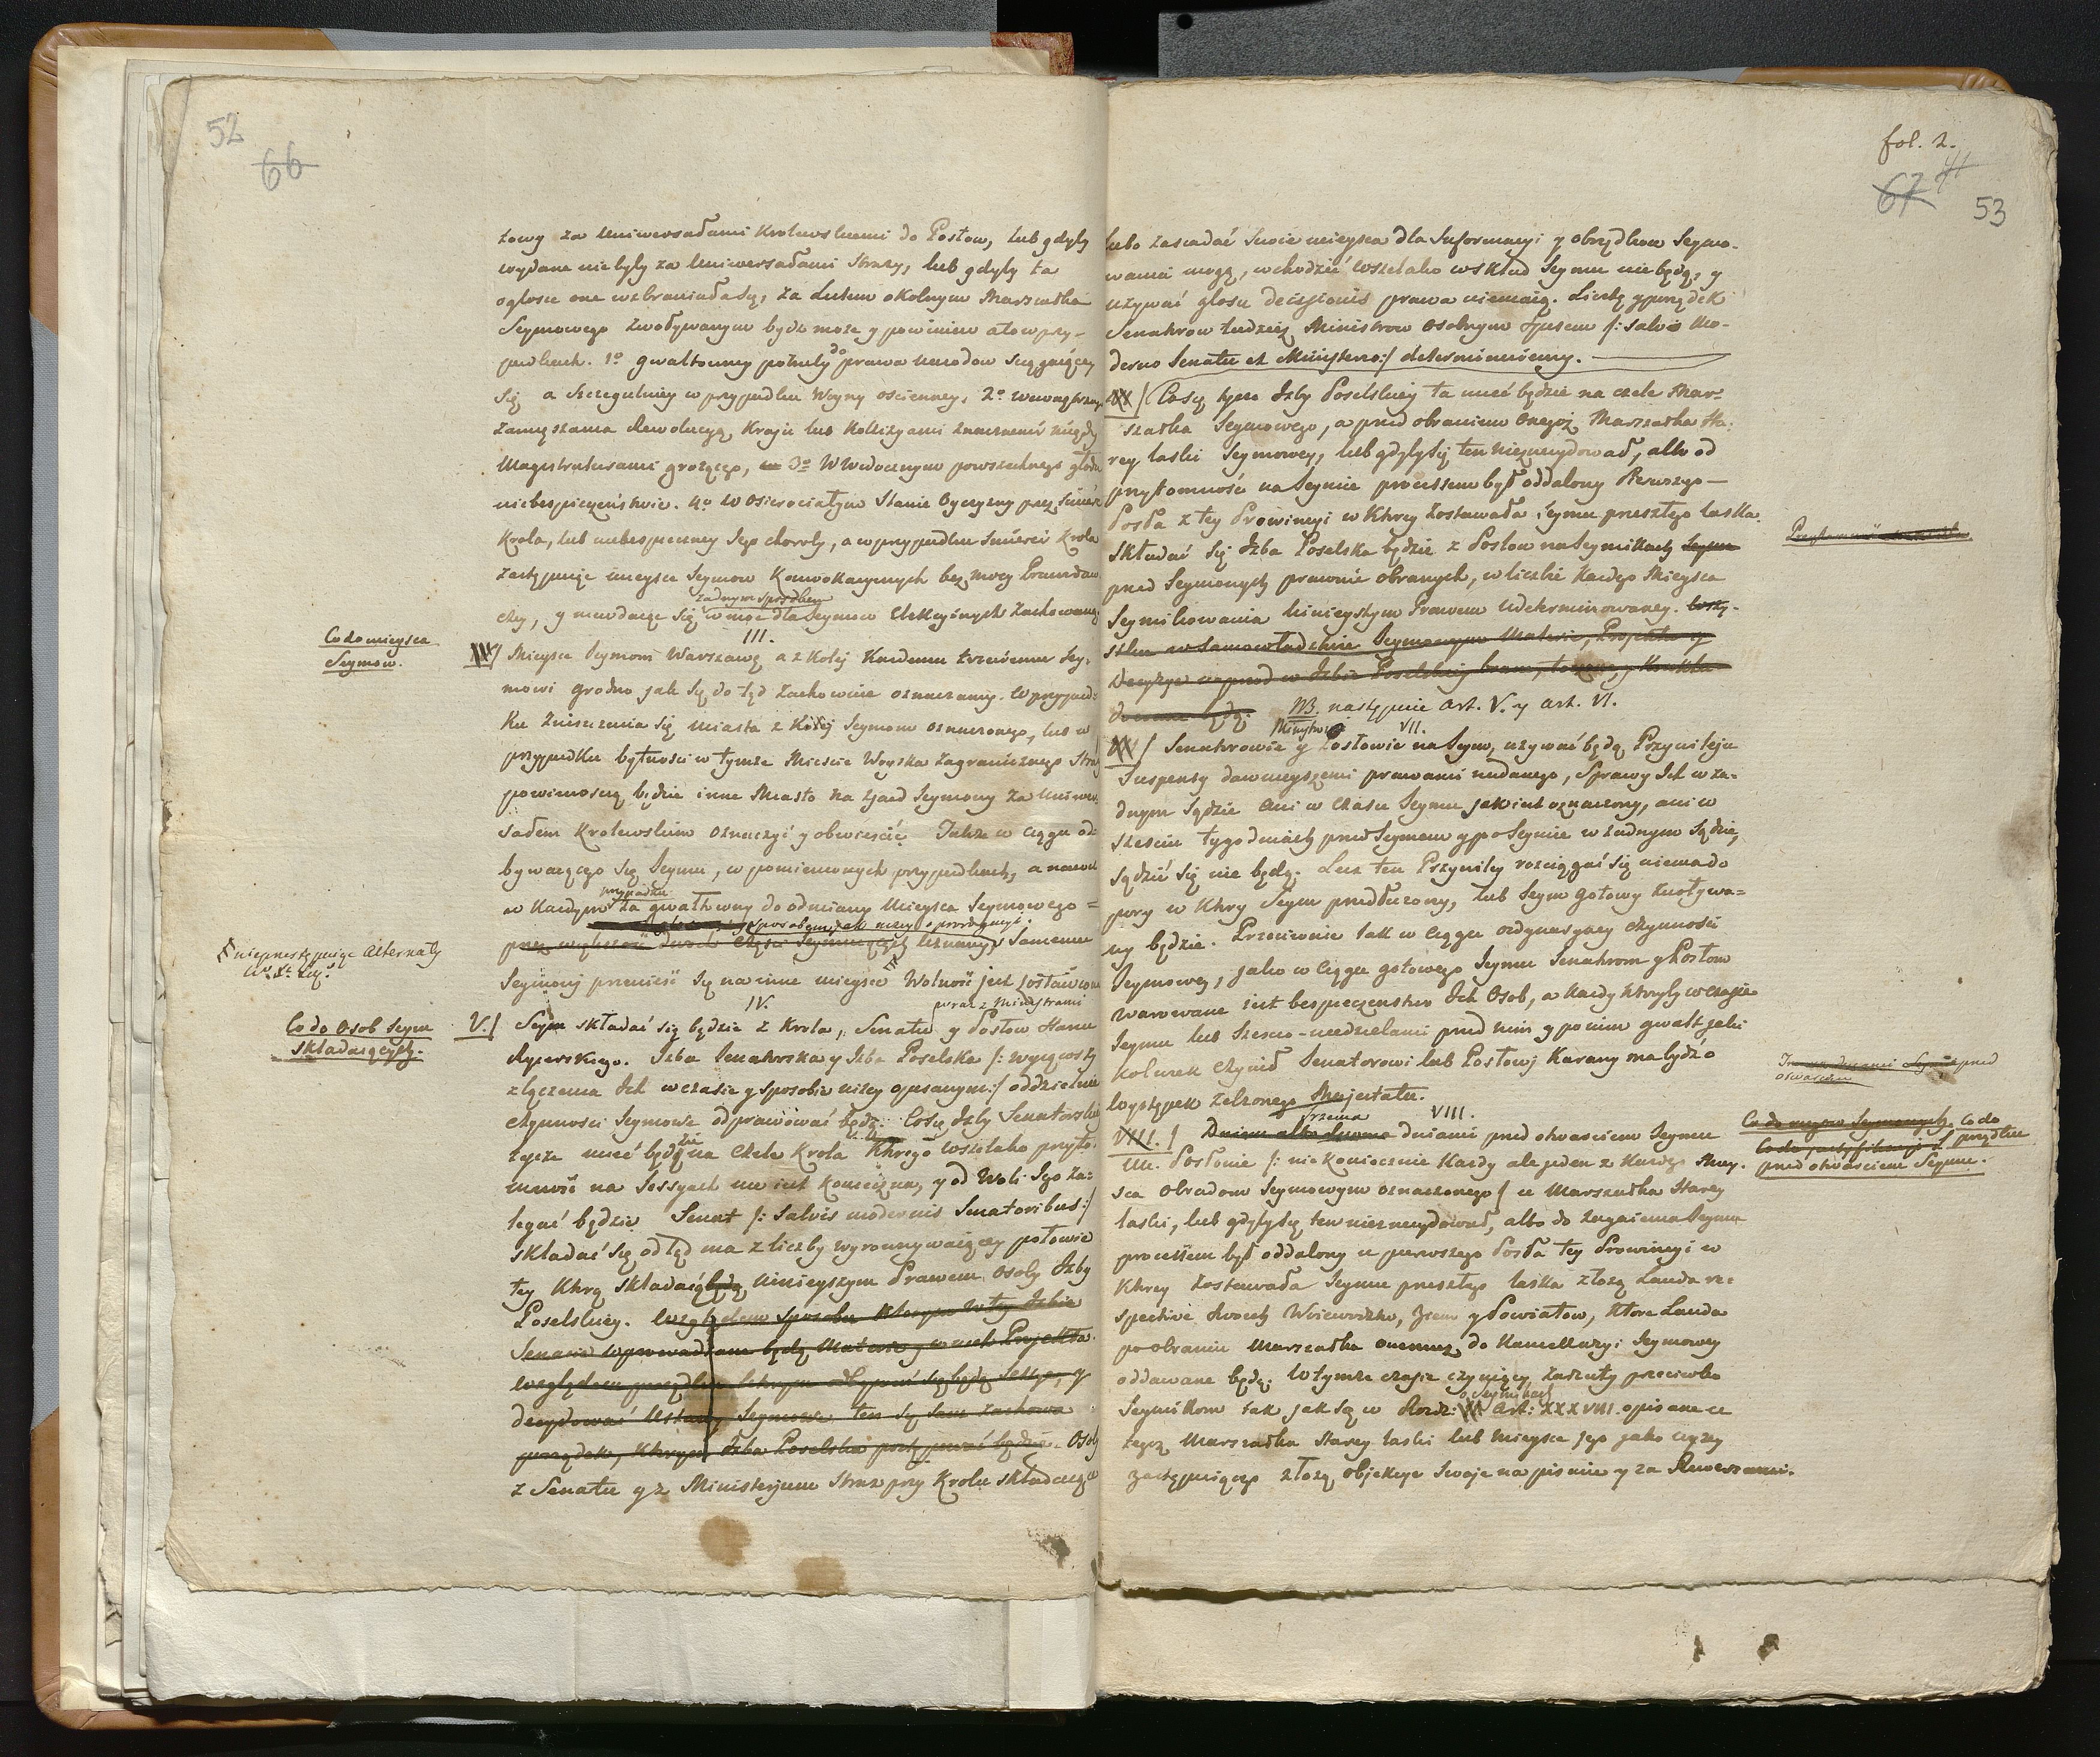 52
66
zowy za Uniwersałami Krolewskiemi do Posłow, lub gdyby
wydane nie były za Uniwersałami Straży, lub gdyby ta
ogłosic one wzbraniała się, za Listem okolnym Marszałka
Seymowego zwoływanym bydz może y powinien a to w przy-
padkach. 1º gwałtowney potrzeby do prawa narodow sciągaiącey
się a szczegulniey w przypadku Woyny osciennej, 2º wewnętrznego
zamięszania Rewolucyą Kraju lub Kollizyami znacznemi między
Magistraturami grożącego, 3º W widocznym powszechnego głodu
niebespieczeństwie. 4º w osierociałym Stanie Oyczyzny przez Smierć
Krola, lub niebespieczney Jego choroby, a w przypadku Smierci Krola
zastępuiąc mieysce Seymow Konwokacyinych bez mocy Prawodaw
czey, y niewdaiąc się żadnym sposobem w moc dla Seymow Elekcyinych zachowaną
III.
Co do mieysca
Seymow.
Mieysce Seymom Warszawę a z Koley Każdemu trzeciemu Sey-
mowi Grodno jak się do tąd zachowuie oznaczamy. W przypad-
ku zniszczenia się miasta z Koley Seymom oznaczonego, lub w
przypadku bytności w tymże Mieście Woyska zagranicznego Straż
powinnością będzie inne Miasto na zjazd Seymowy za Uniwer-
sałem Krolewskim oznaczyć y obwieścić. Także w ciągu od-
bywaiącego się Seymu, w pomienionych przypadkach, a nawet
w Każdym przypadku za gwałtowny do odmiany mieysca Seymowego =
przez większość dwoch części Seymuiących uznanym, Samemu
Seymowi przenieść się na inne mieysce Wolność jest zostawiona
nieprzestępuiąc Alternaty
IV.
Co do Osob Seym
składaiących.
V.
Seym składać się będzie z Krola, Senatu wraz z Ministrami y Posłow Stanu
Rycerskiego. Jzba Senatorska y Jzba Poselska /: wyiąwszy
złączenia Ich w czasie y sposobie niżey opisanym:/ oddzielnie
czynności Seymowe odprawować będą. Co się Jzby Senatorskiey
tycze mieć będzie na czele Krola Ktorego wszelako przyto-
mność na Sessyach nie jest Konieczna, y od Woli Jego za-
legać będzie. Senat /: Salvis modernis Senatoribus:/
składać się odtąd ma z liczby wyrownywaiącey połowie
tey Ktorą składaią będą ninieyszym Prawem Osoby Jzby
Poselskiey. Względem sposobu Ktorym w tey Jzbie
Senacie wprowadzane będą Materie y w nich Projekta
względem porządku Ktorym odbywać się będą Sessye, y
decydować Ustawy Seymowe ten się sam zachowa
porządek, Ktorym Jzba Poselska postępować będzie. Osoby
z Senatu y z Ministerjum Straż przy Krolu składaiące
fol. 2.
67
53
lubo zasiadać swoie mieysca dla Jnformacyi y obrządkow Seymo-
wania mogą, wchodzić wszelako w skład Seymu nie będą, y
używać głosu decisionis prawa niemaią. Liczbę y porządek
Senatorow tudzież Ministrow osobnym opisem /: salvo Mo-
derno Senatu et Ministerio:/ determinuiemy.
Co się tycze Jzby Poselskiey ta mieć będzie na czele Mar-
szałka Seymowego, a przed obraniem onegoż Marszałka Sta-
rey laski Seymowey, lub gdyby się ten nieznaydował, albo od
przytomności na Seymie processem był oddalony Pierwszego
Posła z tey Prowincyi w Ktorey zostawała Seymu przeszłego laska.
Składać się Jzba Poselska będzie z Posłow na Seymikach
przed Seymowych prawnie obranych, w liczbie Każdego Mieysca
Seymikowania ninieyszym Prawem udeterminowaney.
stkie w Samowładztwie Seymowym Materie, Projekta y
Decyzye naprzod w Jzbie Poselskiey brane,
będą. NB. następuie Art. V. y Art. VI.
VII.
Senatorowie Ministrowie y Posłowie na Seym, używać będą Przywileju
Suspensy dawnieyszemi prawami nadanego, Sprawy Ich w ża-
dnym Sądzie ani w czasie Seymu jak jest oznaczony, ani w
sześciu tygodniach przed Seymem y po Seymie w żadnym Sądzie
sądzić się nie będą. Lecz ten Przywiley rozciągać się niema do
pory w Ktorey Seym przedłużony, lub Seym gotowy zwoływa-
ny będzie. Przeciwnie tak w ciągu ordynaryiney czynności
Seymowey, jako w ciągu gotowego Seymu Senatorom y Posłom
warowane jest bezpieczeństwo Ich Osob, a Każdy Ktoryby w czasie
Seymu lub sześcio-niedzielami przed nim y po nim gwałt jaki
kolwiek czynił Senatorowi lub Posłowi Karany ma bydź o
występek zelżonego Majestatu.
VIII.
VIII.
Dniem albo dwoma trzema dniami przed otwarciem Seymu
Posłowie /: niekoniecznie Każdy ale jeden z Każdego Miey-
sca Obradom Seymowym oznaczonego:/ u Marszałka Starey
laski, lub gdyby się ten nieznaydował, albo do zagaienia Seymu
processem był oddalony u pierwszego Posła tey Prowincyi w
Ktorey zostawała Seymu przeszłego laska złożą Lauda re-
spective swoich Wojewodztw, Ziem y Powiatow, Ktore Lauda
po obraniu Marszałka onemuż do Kancellaryi Seymowey
oddawane będą. W tymże czasie czyniący zarzuty przeciwko
Seymikom tak jak się w Rozdz: o Seymikach Art: XXXVIII. opisane u
tegoż Marszałka starey laski lub mieysce jego jako wyżey
zastępuiącego złożą objekcye swoje na pismie y za Rewersami.
przed
otwarciem
Co do
porządku
przed otwarciem Seymu.